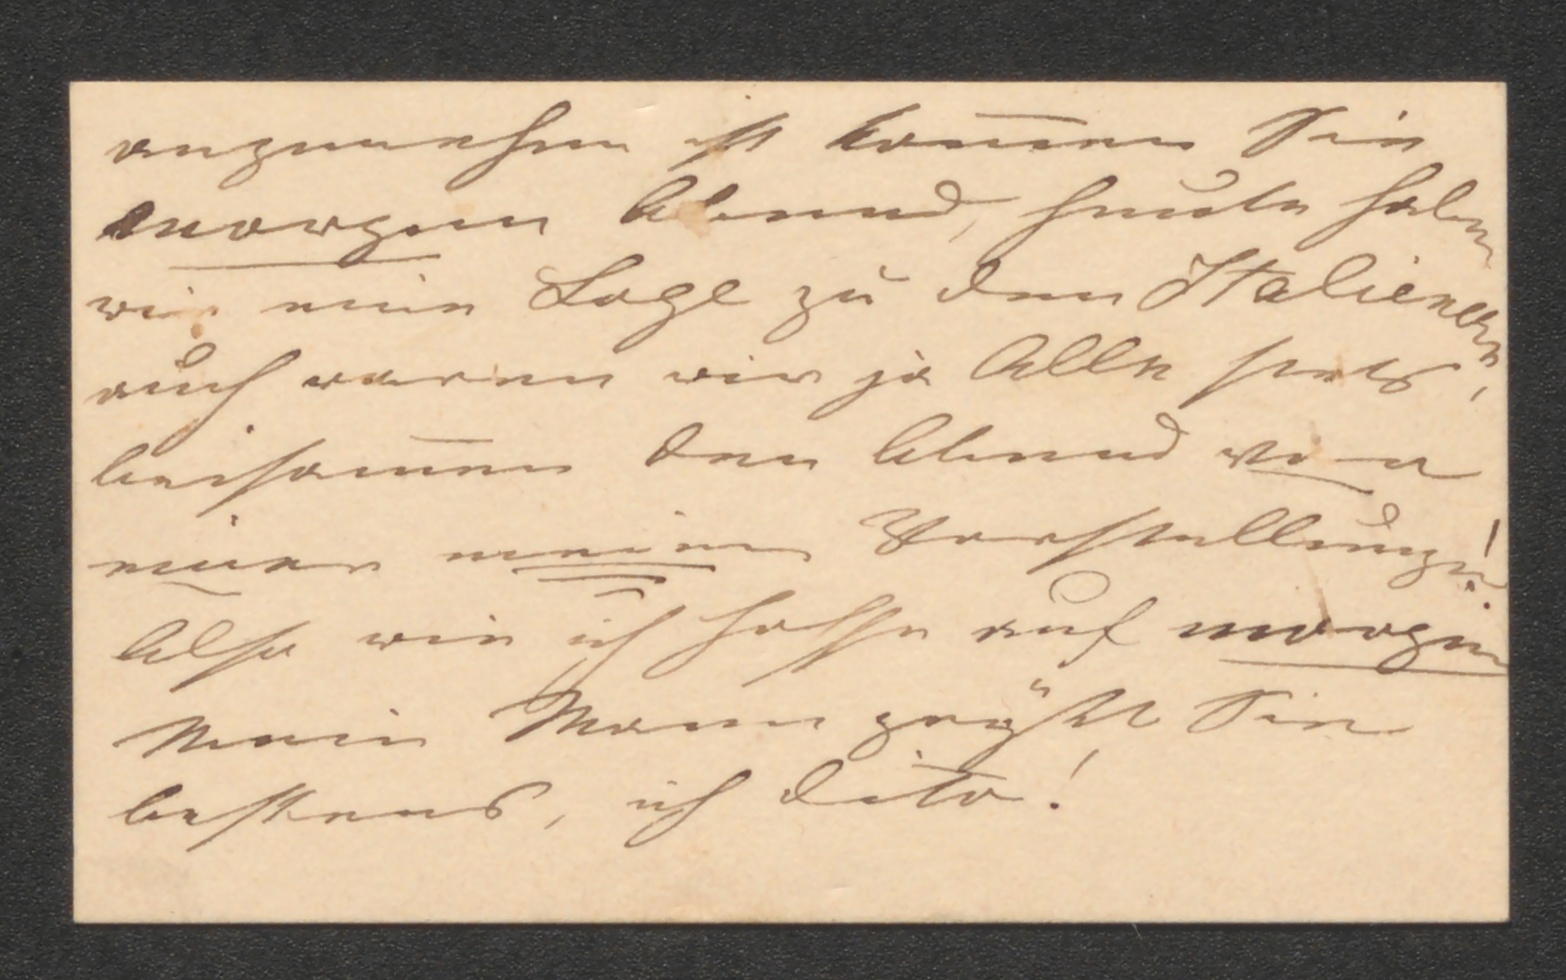 angenehm ist kom̅en Sie
morgen Abend, heute haben
wir eine Loge zu den Italienern,
auch waren wir ja Alle stets
beisam̅en den Abend vor
einer meiner Vorstellungen!
Also wie ich hoffe auf morgen
Mein Mann grüßt Sie
bestens, ich dito!